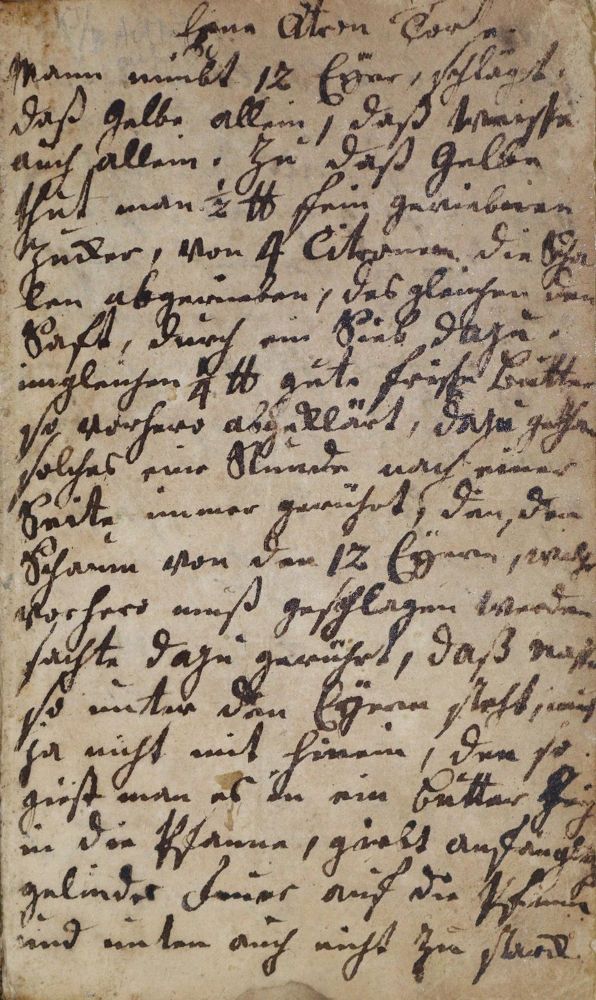 Eene Citron Torte.
Mann nimbt 12 Eyer, schlägt
daß Gelbe allein, daß Weisse
auch allein. Zu daß Gelbe
thut man ½ ℔ fein geriebenen
Zucker, von 4 Citronen die Scha
len abgerieben, desgleichen den
Safft, durch ein Sieb dazu.
imgleichen ¼ ℔ gute frische Butter
so vorhero abgeklärt, dazu gethan
solches eine Stunde nach einer
Seite immer gerührt, den, den
Schaum von den 12 Eyern, welch
vorhero muß geschlagen werden
sachte dazu gerührt, daß
so unter den Eyern steht, muß
ja nicht mit hinein, den so
giest man es in ein butter
in die Pfanne, giebt anfänglich
gelindes Feuer auf die Pfanne
und unten auch nicht zu starck.